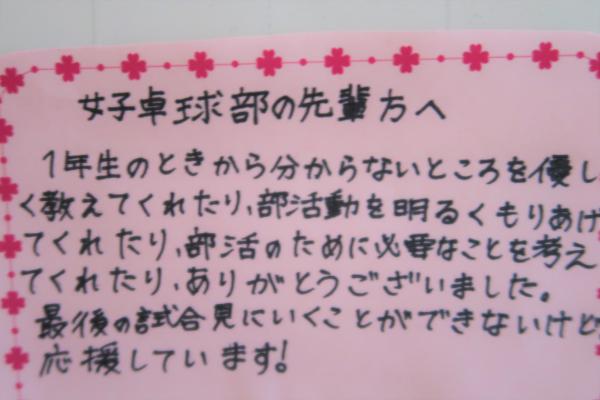 女子卓球部の先輩方へ
1年生のときから分からないところを優し
く教えてくれたり、部活動を明るくもりあげ
てくれたり、部活のために必要なことを考え
てくれたり、ありがとうございました。
最後の試合見にいくことができないけど
応援しています!